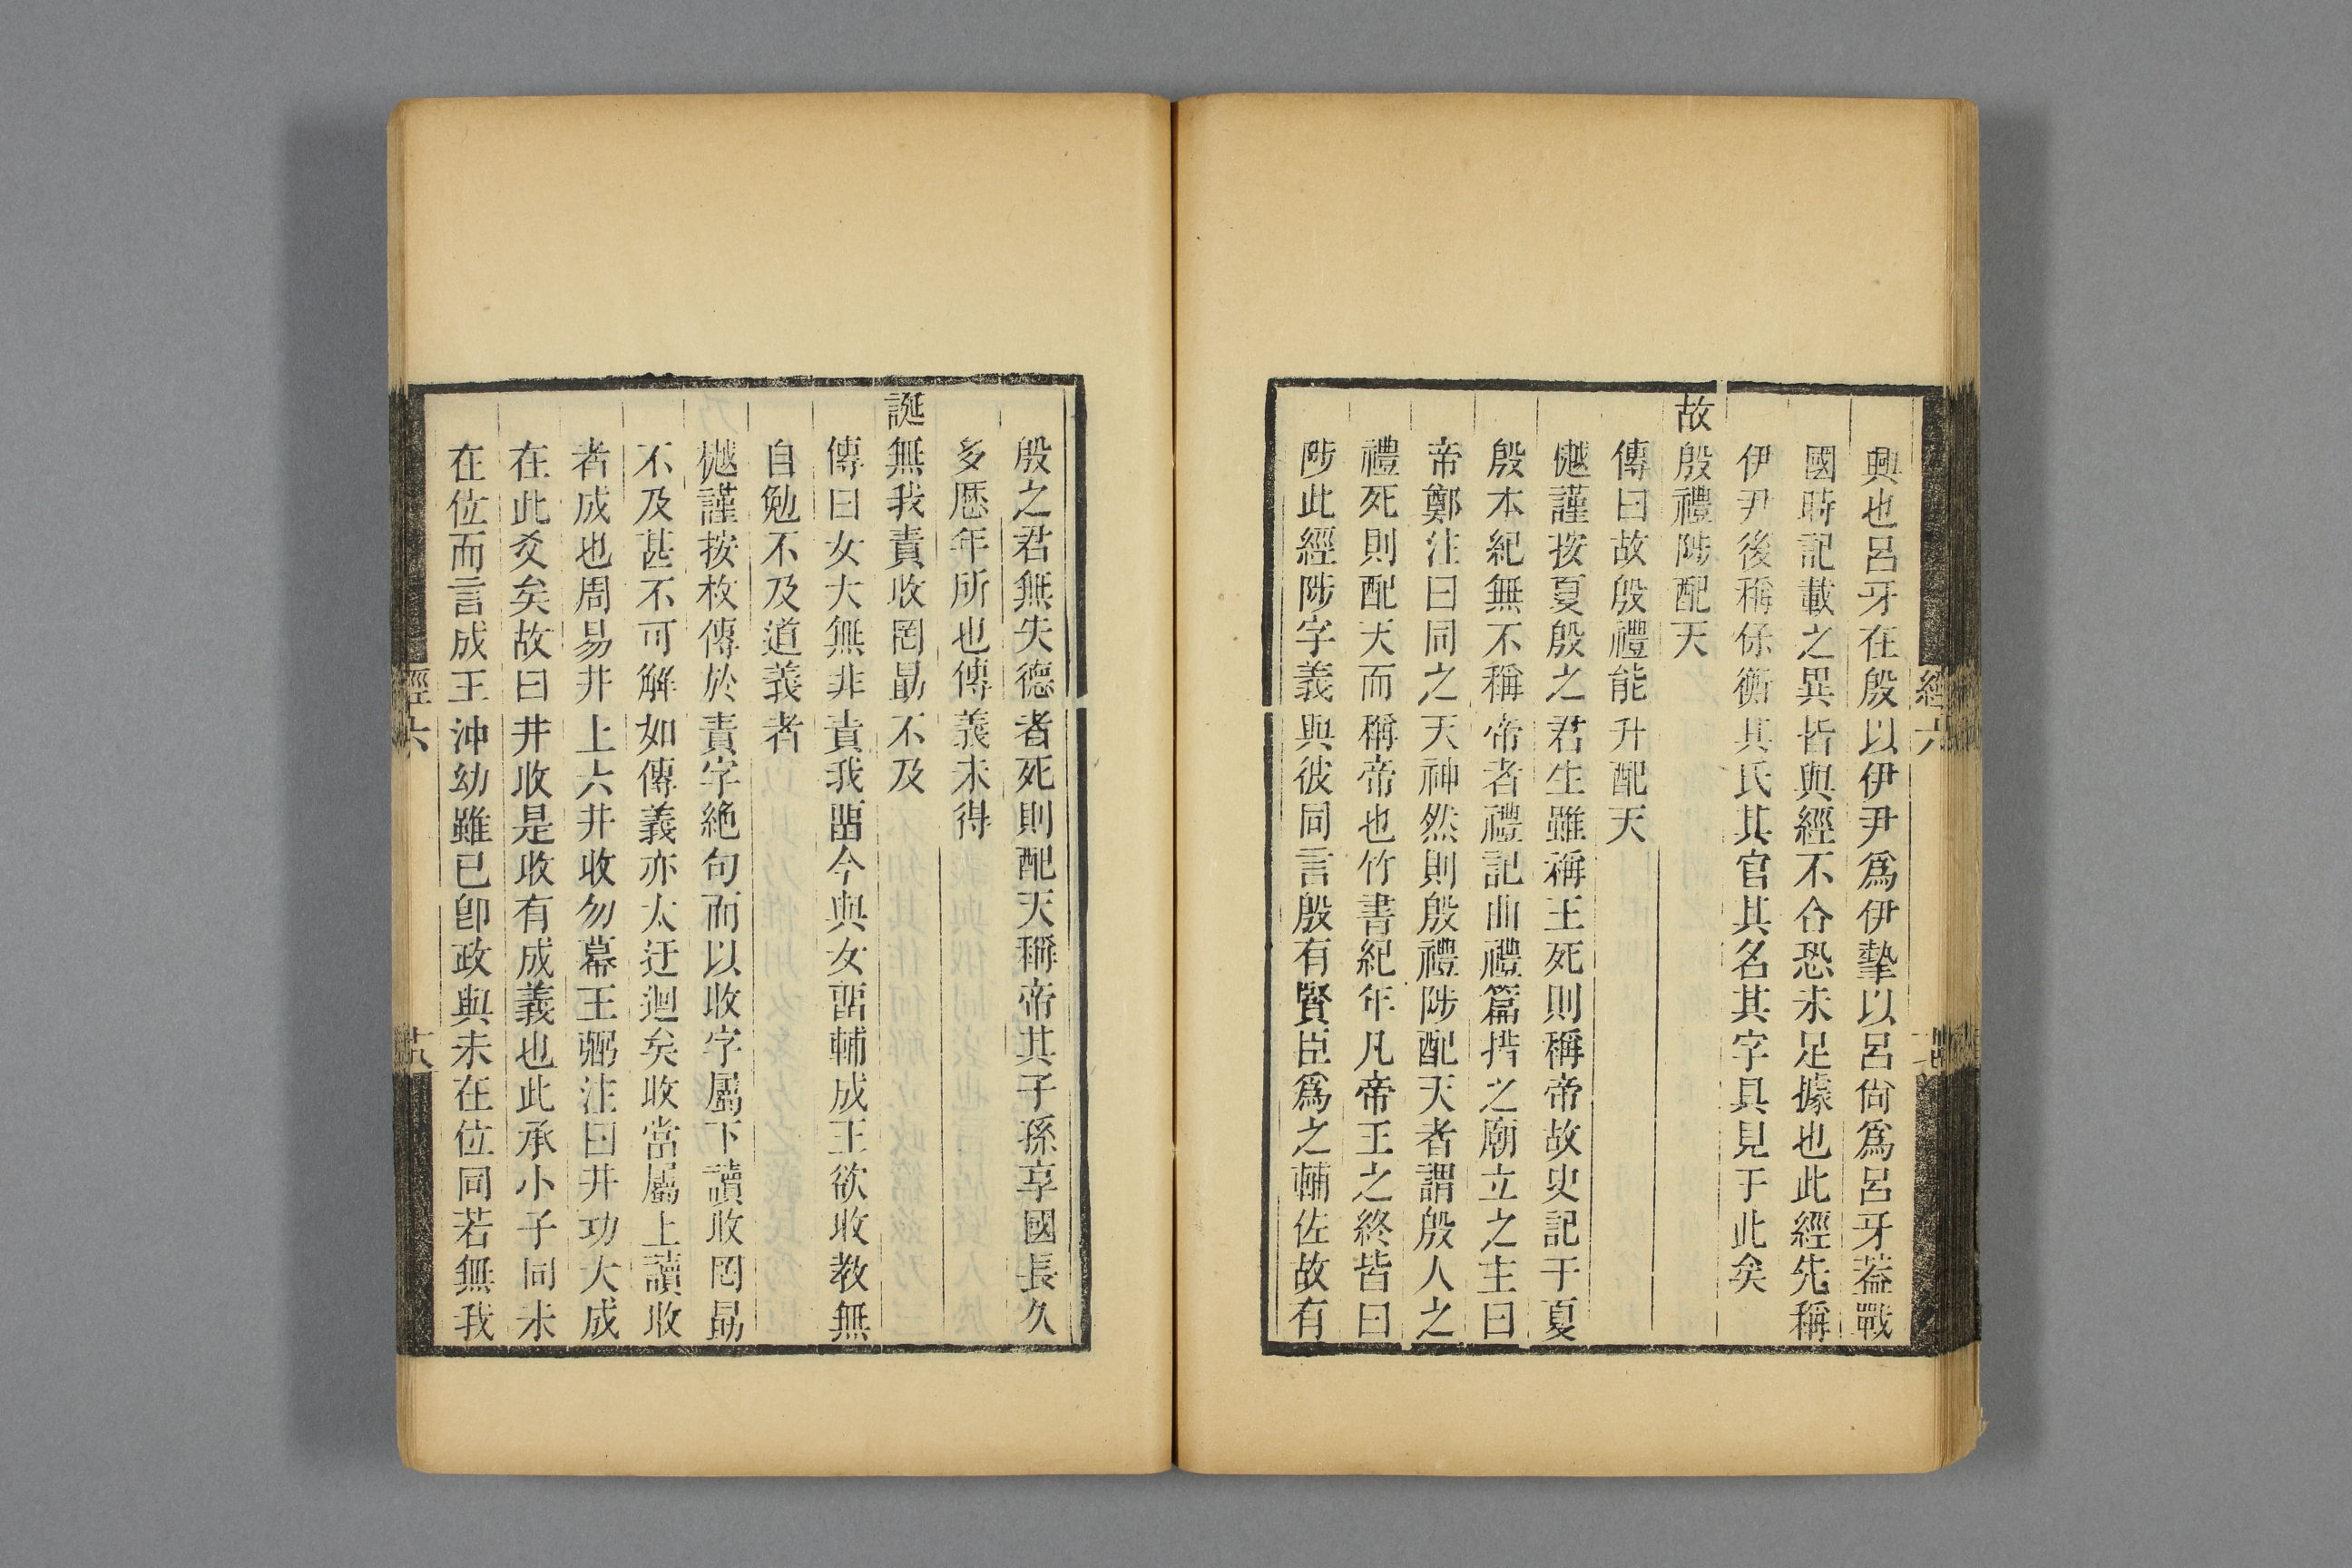 興也呂牙在殷以伊尹爲伊摯以呂尙爲呂牙葢戰
國時記載之異皆與經不合恐未足據也此經先稱
伊尹後稱保衡其氏其官其名其字具見于此矣
故殷禮陟配天
傳曰故殷禮能升配天
樾謹按夏殷之君生雖稱王死則稱帝故史記于夏
殷本紀無不稱帝者禮記曲禮篇措之廟立之主曰
帝鄭注曰同之天神然則殷禮陟配天者謂殷人之
禮死則配天而稱帝也竹書紀年凡帝王之終皆曰
陟此經陟字義與彼同言殷有賢臣爲之輔佐故有
殷之君無失德者死則配天稱帝其子孫享國長久
多歷年所也傳義未得
誕無我責收罔勗不及
傳曰女大無非責我畱今與女畱輔成王欲收教無
自勉不及道義者
樾謹按枚傳於責字絶句而以收字屬下讀收罔勗
不及甚不可解如傳義亦太迂迴矣收當屬上讀收
者成也周易井上六井收勿幕王弼注曰井功大成
在此爻矣故曰井收是收有成義也此承小子同未
在位而言成王沖幼雖已卽政與未在位同若無我
經六
經六